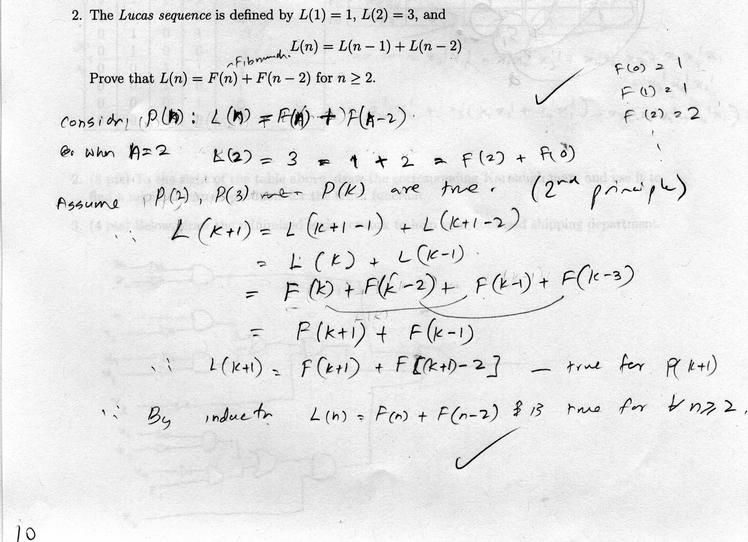 2. The Lucas sequence is defined by L(1) = 1, L(2) = 3, and
L(n) = L(n − 1) + L(n − 2)
Prove that L(n) = F(n) + F(n − 2) for n ≥ 2.
F(0) = 1
F(1) = 1
F(2) = 2
Consider, P(n): L(n) = F(n) + F(n-2).
when n=2 L(2) = 3 = 1 + 2 = F(2) + F(0)
Assume P(2), P(3) P(k) are true. (2nd principle)
∴ L(k+1) = L(k+1-1) + L(k+1-2)
= L(k) + L(k-1)
= F(k) + F(k-2) + F(k-1) + F(k-3)
= F(k+1) + F(k-1)
∴ L(k+1) = F(k+1) + F[(k+1)-2] — true for P(k+1)
∴ By inductn L(n) = F(n) + F(n-2) is true for ∀ n≥2.
10